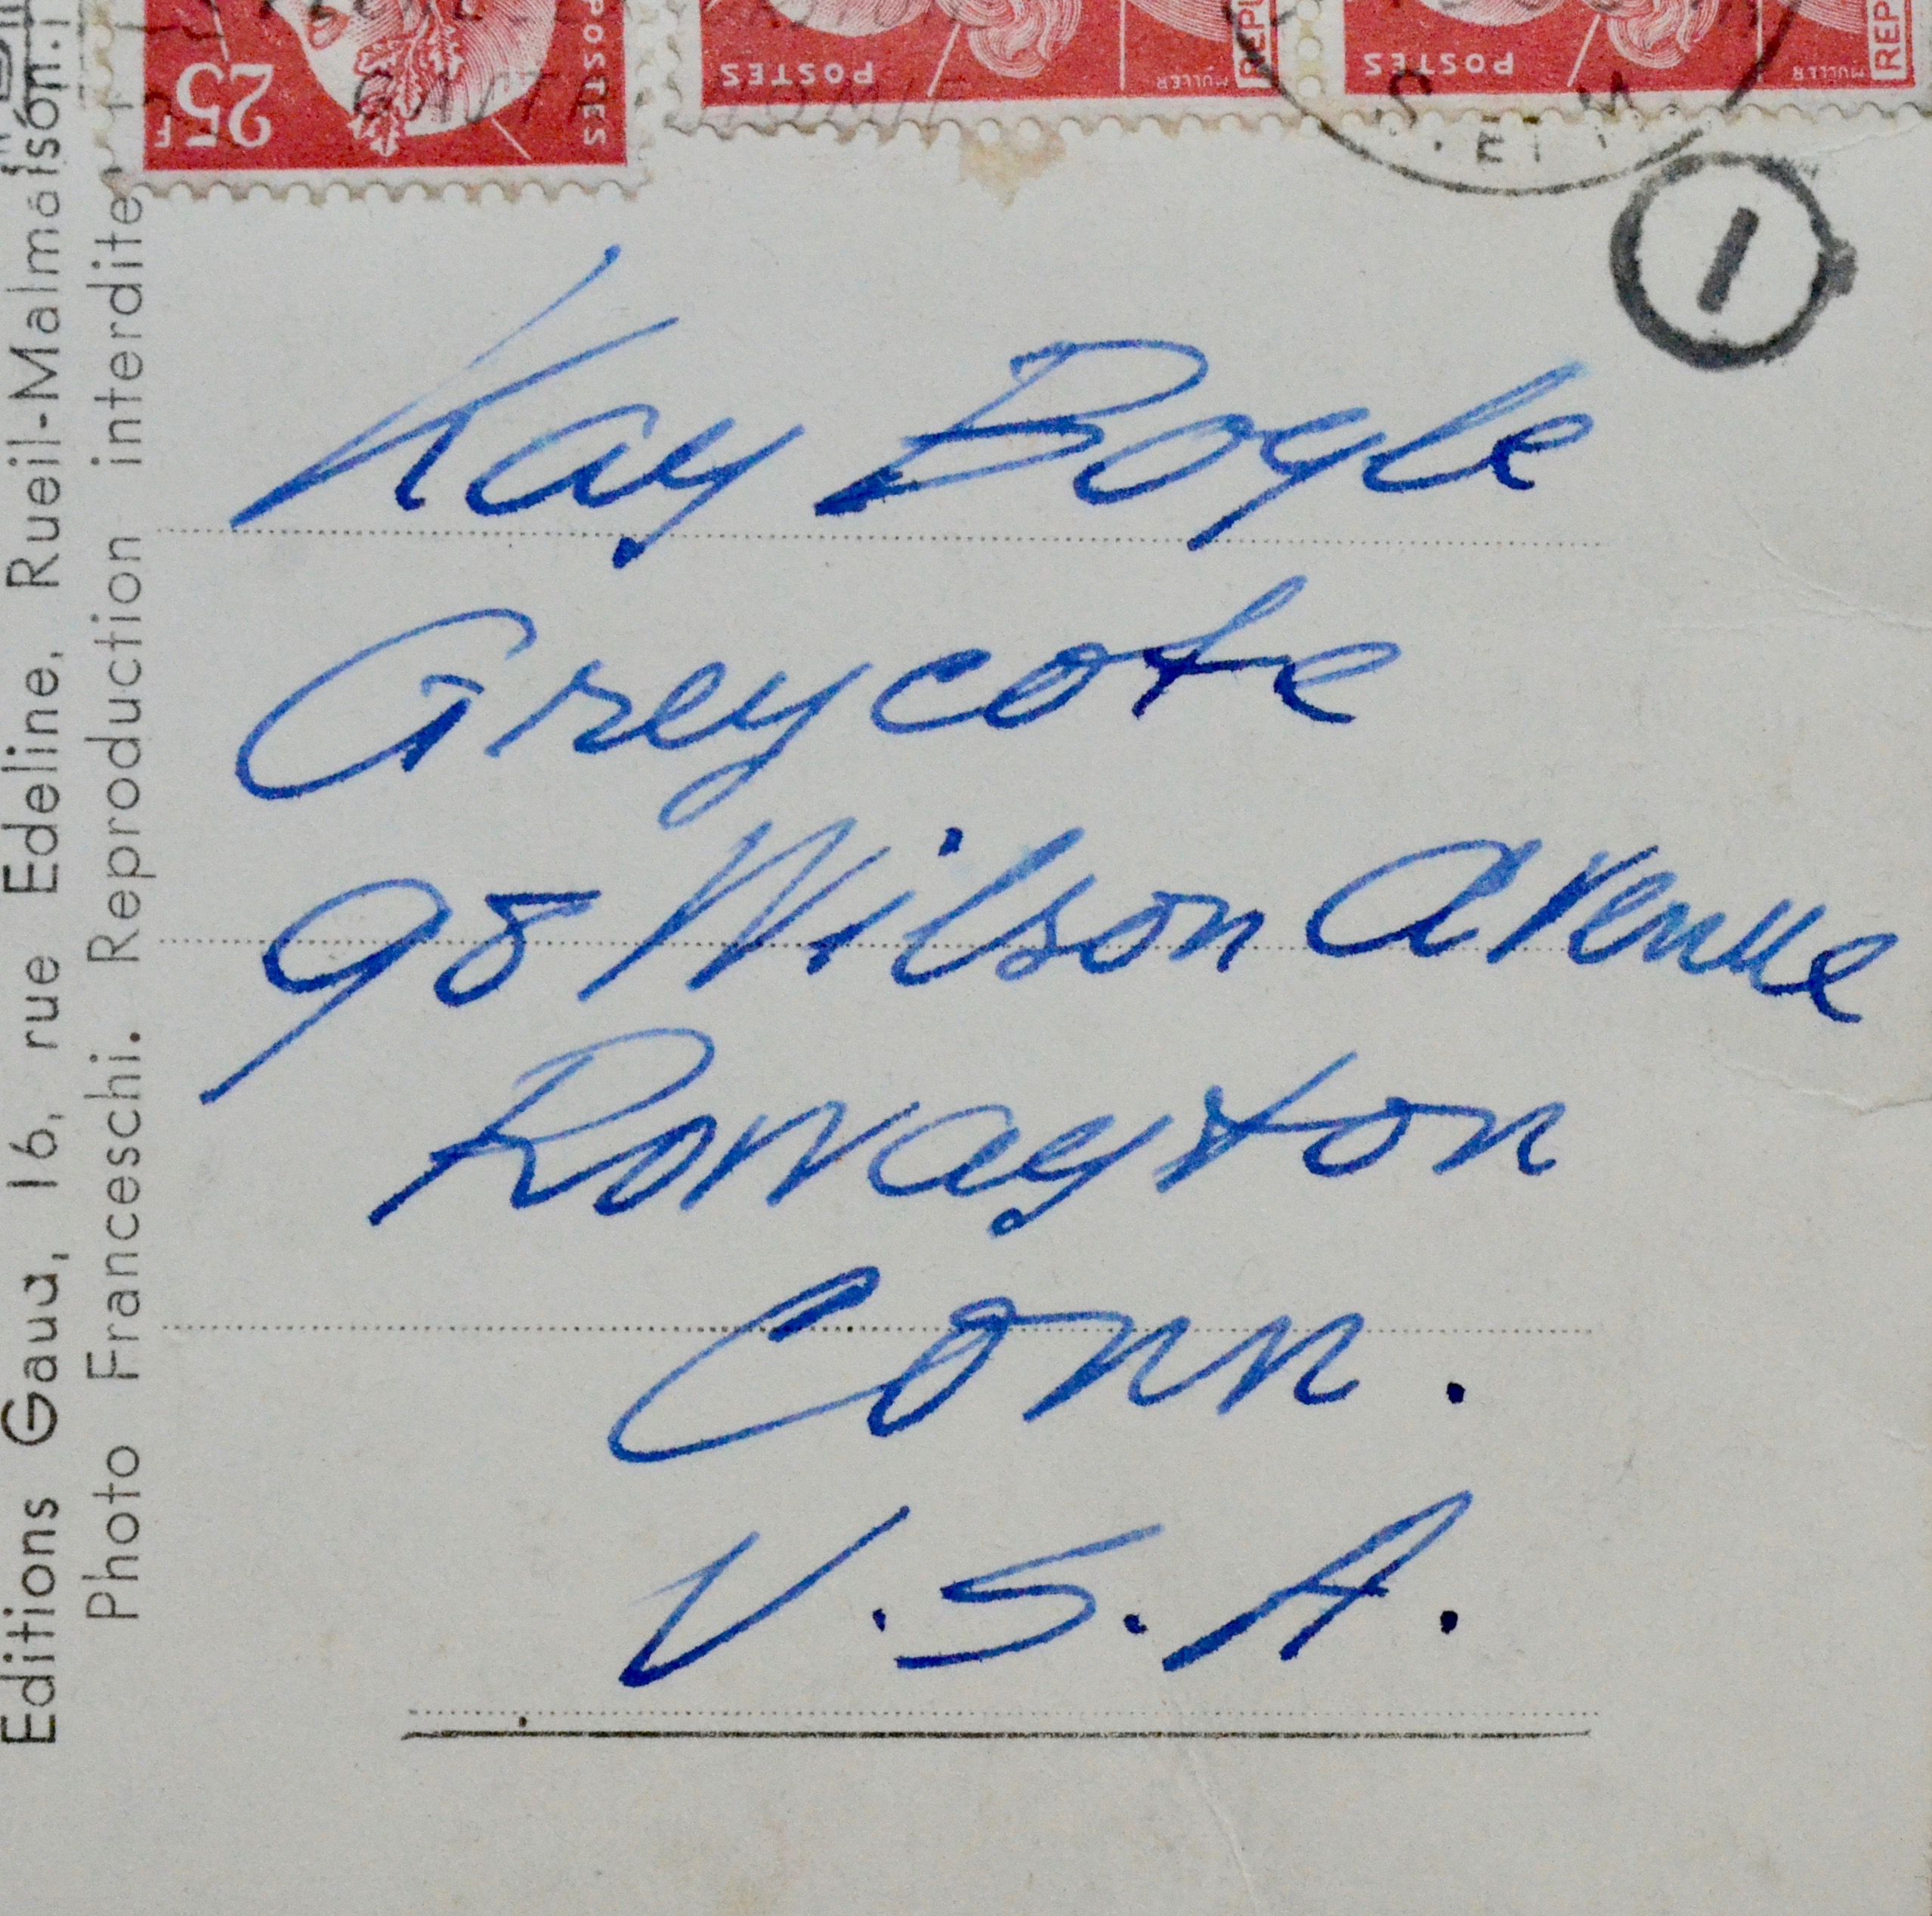 25F
POSTES
POSTES
MULLER
REPU
POSTES
MULLER
REP
S. ET M.
1
Kay Boyle
Greycote
98 Wilson Avenue
Rowayton
Conn.
U.S.A.
Editions Gaud, 16, rue Edeline, Rueil-Malmaison.
Photo Franceschi. Reproduction interdite